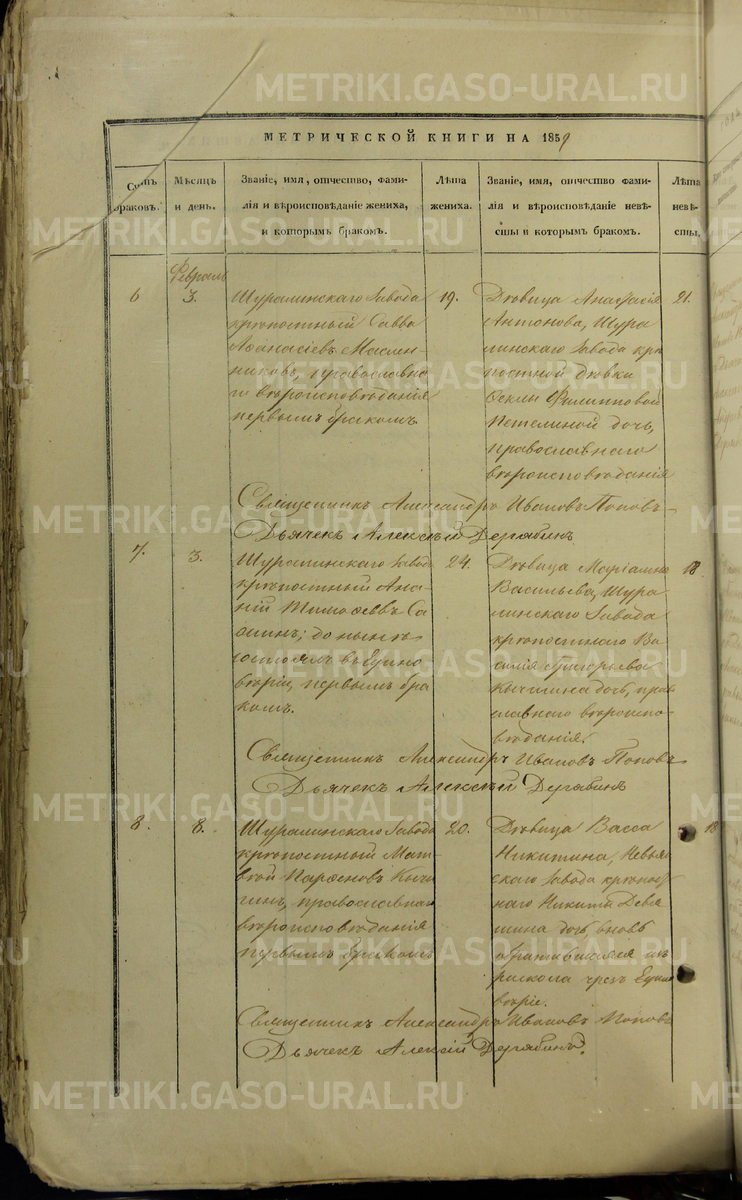 METRIKI.GASO-URAL.RU
МЕТРИЧЕСКОЙ КНИГИ НА 1859
Счетъ браковъ.
Мѣсяцъ и день.
Званіе, имя, отчество, фами-
лія и вѣроисповѣданіе жениха,
и которымъ бракомъ.
Лѣта
жениха.
Званіе, имя, отчество фами-
лія и вѣроисповѣданіе невѣ-
сты и которымъ бракомъ.
Лѣта
невѣ-
сты,
Февраль
6
3.
Шуралинскаго Завода
крѣпостный Савва
Аѳанасіевъ Маслен-
никовъ, православна-
го вѣроисповѣданія
первымъ бракомъ.
19.
Дѣвица Анастасія
Антонова, Шура
линскаго Завода крѣ
постной дѣвки
Филипповой
Петелиной дочь,
православнаго
вѣроисповѣданія
21.
Священникъ Александръ Ивановъ Поповъ
Дьячекъ Алексѣй Дерябинъ
7.
3.
Шуралинскаго Завода
крѣпостный Ана-
ній Тимоѳеевъ Са
; до нынѣ
состоялъ въ Едино
вѣріи, первымъ бра
комъ.
24.
Дѣвица Маріамна
Васильева, Шура
линскаго Завода
крѣпостнаго Ва
силія Григорьева
Кычигина дочь, пра
славнаго вѣроиспо-
вѣданія.
18
Священникъ Александръ Ивановъ Поповъ
Дьячекъ Алексѣй Дерябинъ
8.
8.
Шуралинскаго Завода
крѣпостный Мат-
вѣй Парѳеновъ Кычи
гинъ, православнаго
вѣроисповѣданія
первымъ бракомъ
20.
Дѣвица Васса
Никитина, Невьян
скаго Завода крѣпост
наго Никиты Девя
шина дочь вновь
обратившаяся изъ
раскола чрезъ Един
вѣріе.
18
Священникъ Александръ Ивановъ Поповъ
Дьячекъ Алексѣй Дерябинъ.